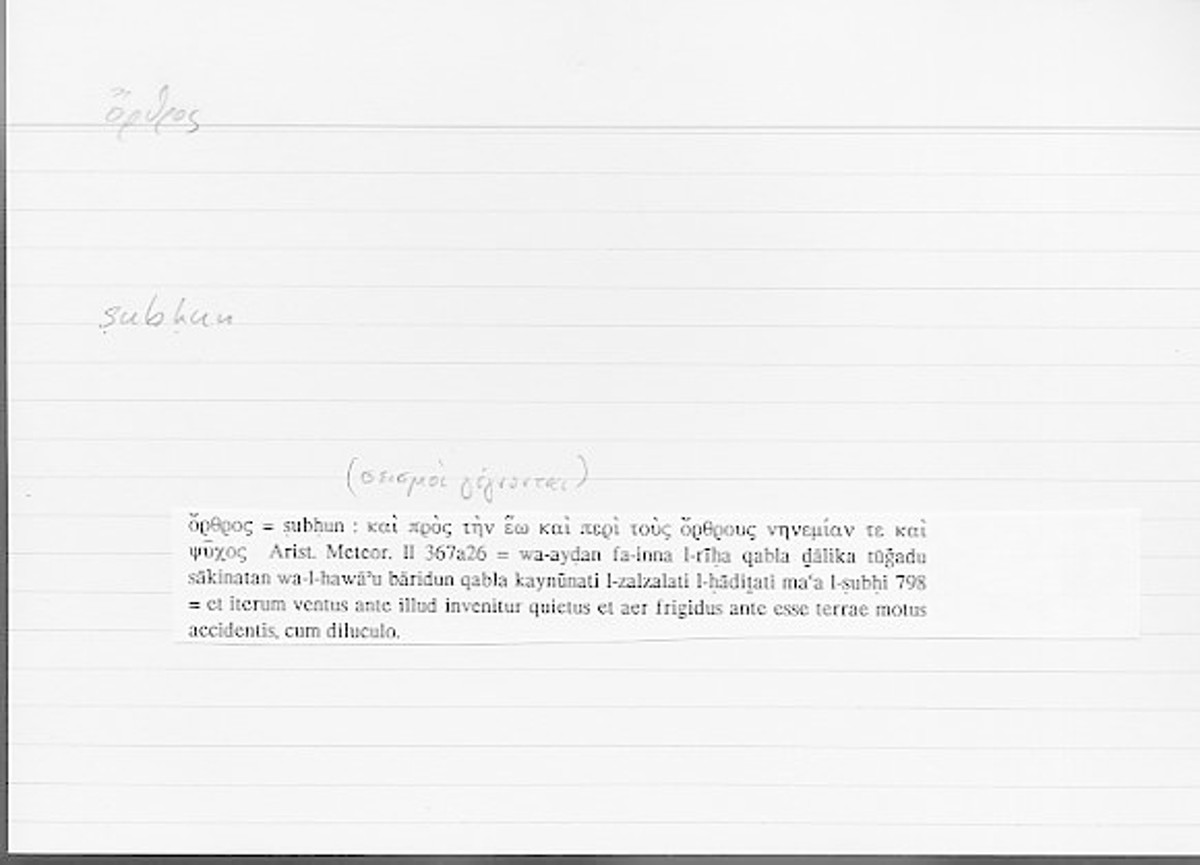 ὄρθρος
ṣubḥun
(σεισμοὶ γίγνονται)
ὄρθρος = ṣubḥun : καὶ πρὸς τὴν ἕω καὶ περὶ τοὺς ὄρθρους νηνεμίαν τε καὶ
ψῦχος Arist. Meteor. II 367a26 = wa-ayḍan fa-inna l-rīḥa qabla ḏālika tūǧadu
sākinatan wa-l-hawāʾu bāridun qabla kaynūnati l-zalzalati l-ḥādiṯati maʿa l-ṣubḥi 798
= et iterum ventus ante illud invenitur quietus et aer frigidus ante esse terrae motus
accidentis, cum diluculo.